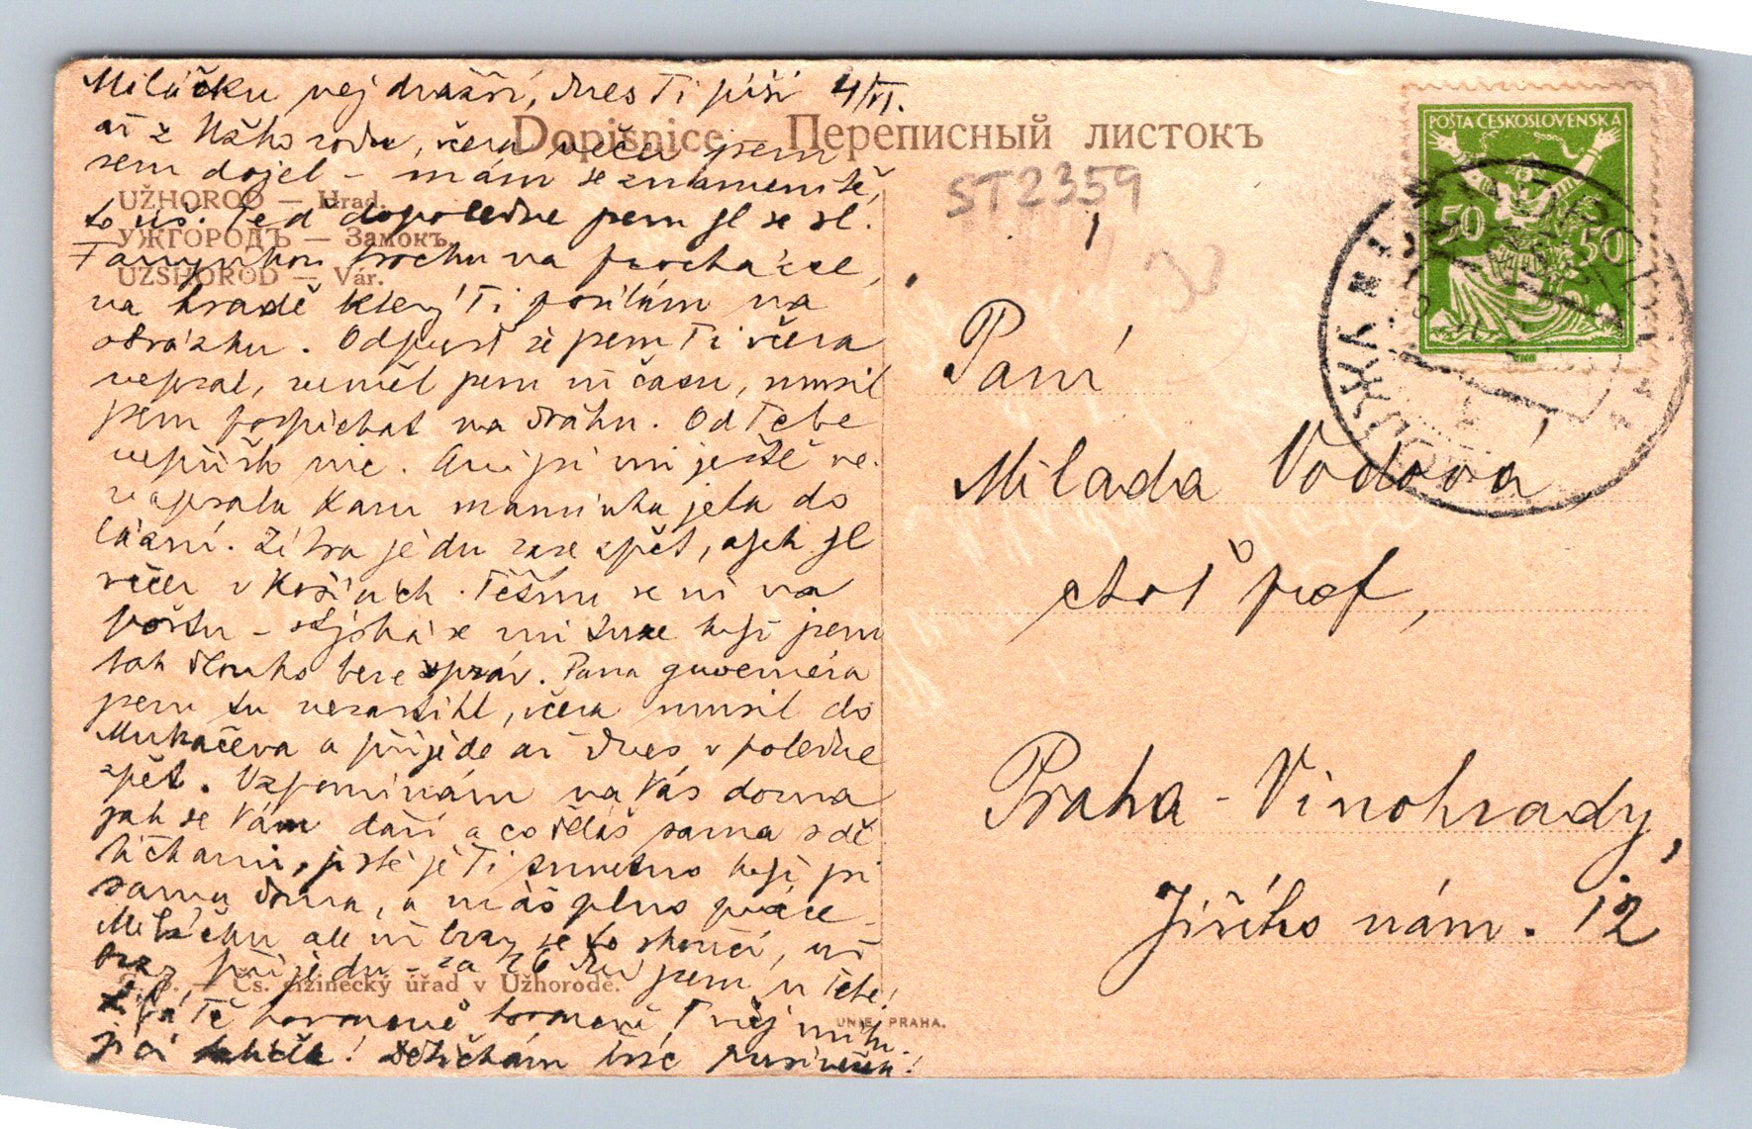 Miláčku nejdražší, dnes Ti píši 4/VI.
až z Užhorodu, včera večer jsem
sem dojel – mám se znamenitě,
to víš. Teď dopoledne jsem šel se sl.
trochu na procházce,
na hradě který Ti posílám na
obrázku. Odpusť že jsem Ti včera
nepsal, neměl jsem ni času, musil
jsem pospíchat na dráhu. Od Tebe
nepřišlo nic. Ani jsi mi ještě ne-
napsala kam maminka jela do
lázní. Zítra jedu zase zpět,
večer v Košicích. Těším se ni na
poštu – stýská se mi když jsem
tak dlouho beze zpráv. Pana guvernéra
jsem tu nezastihl, včera musil do
Mukačeva a přijede až dnes v poledne
zpět. Vzpomínám na Vás doma
jak se Vám daří a co děláš sama s dě-
tičkami, jistě je Ti smutno když jsi
sama doma, a máš plno práce –
Miláčku ale už brzy se to skončí, už
brzy přijedu – za 26 dní jsem u Tebe!
Líbá Tě Tvůj milu-
jící ! Dětičkám tisíc pusinek!
Dopisnice — Переписный листокъ
UŽHOROD — Hrad.
УЖГОРОДЪ — Замокъ.
UZSHOROD — Vár.
Čs. cizinecký úřad v Užhorodě.
UNIE, PRAHA.
ST2359
POŠTA ČESKOSLOVENSKÁ
50 50
Paní
Milada Vodová
choť prof,
Praha - Vinohrady,
Jiřího nám. 12